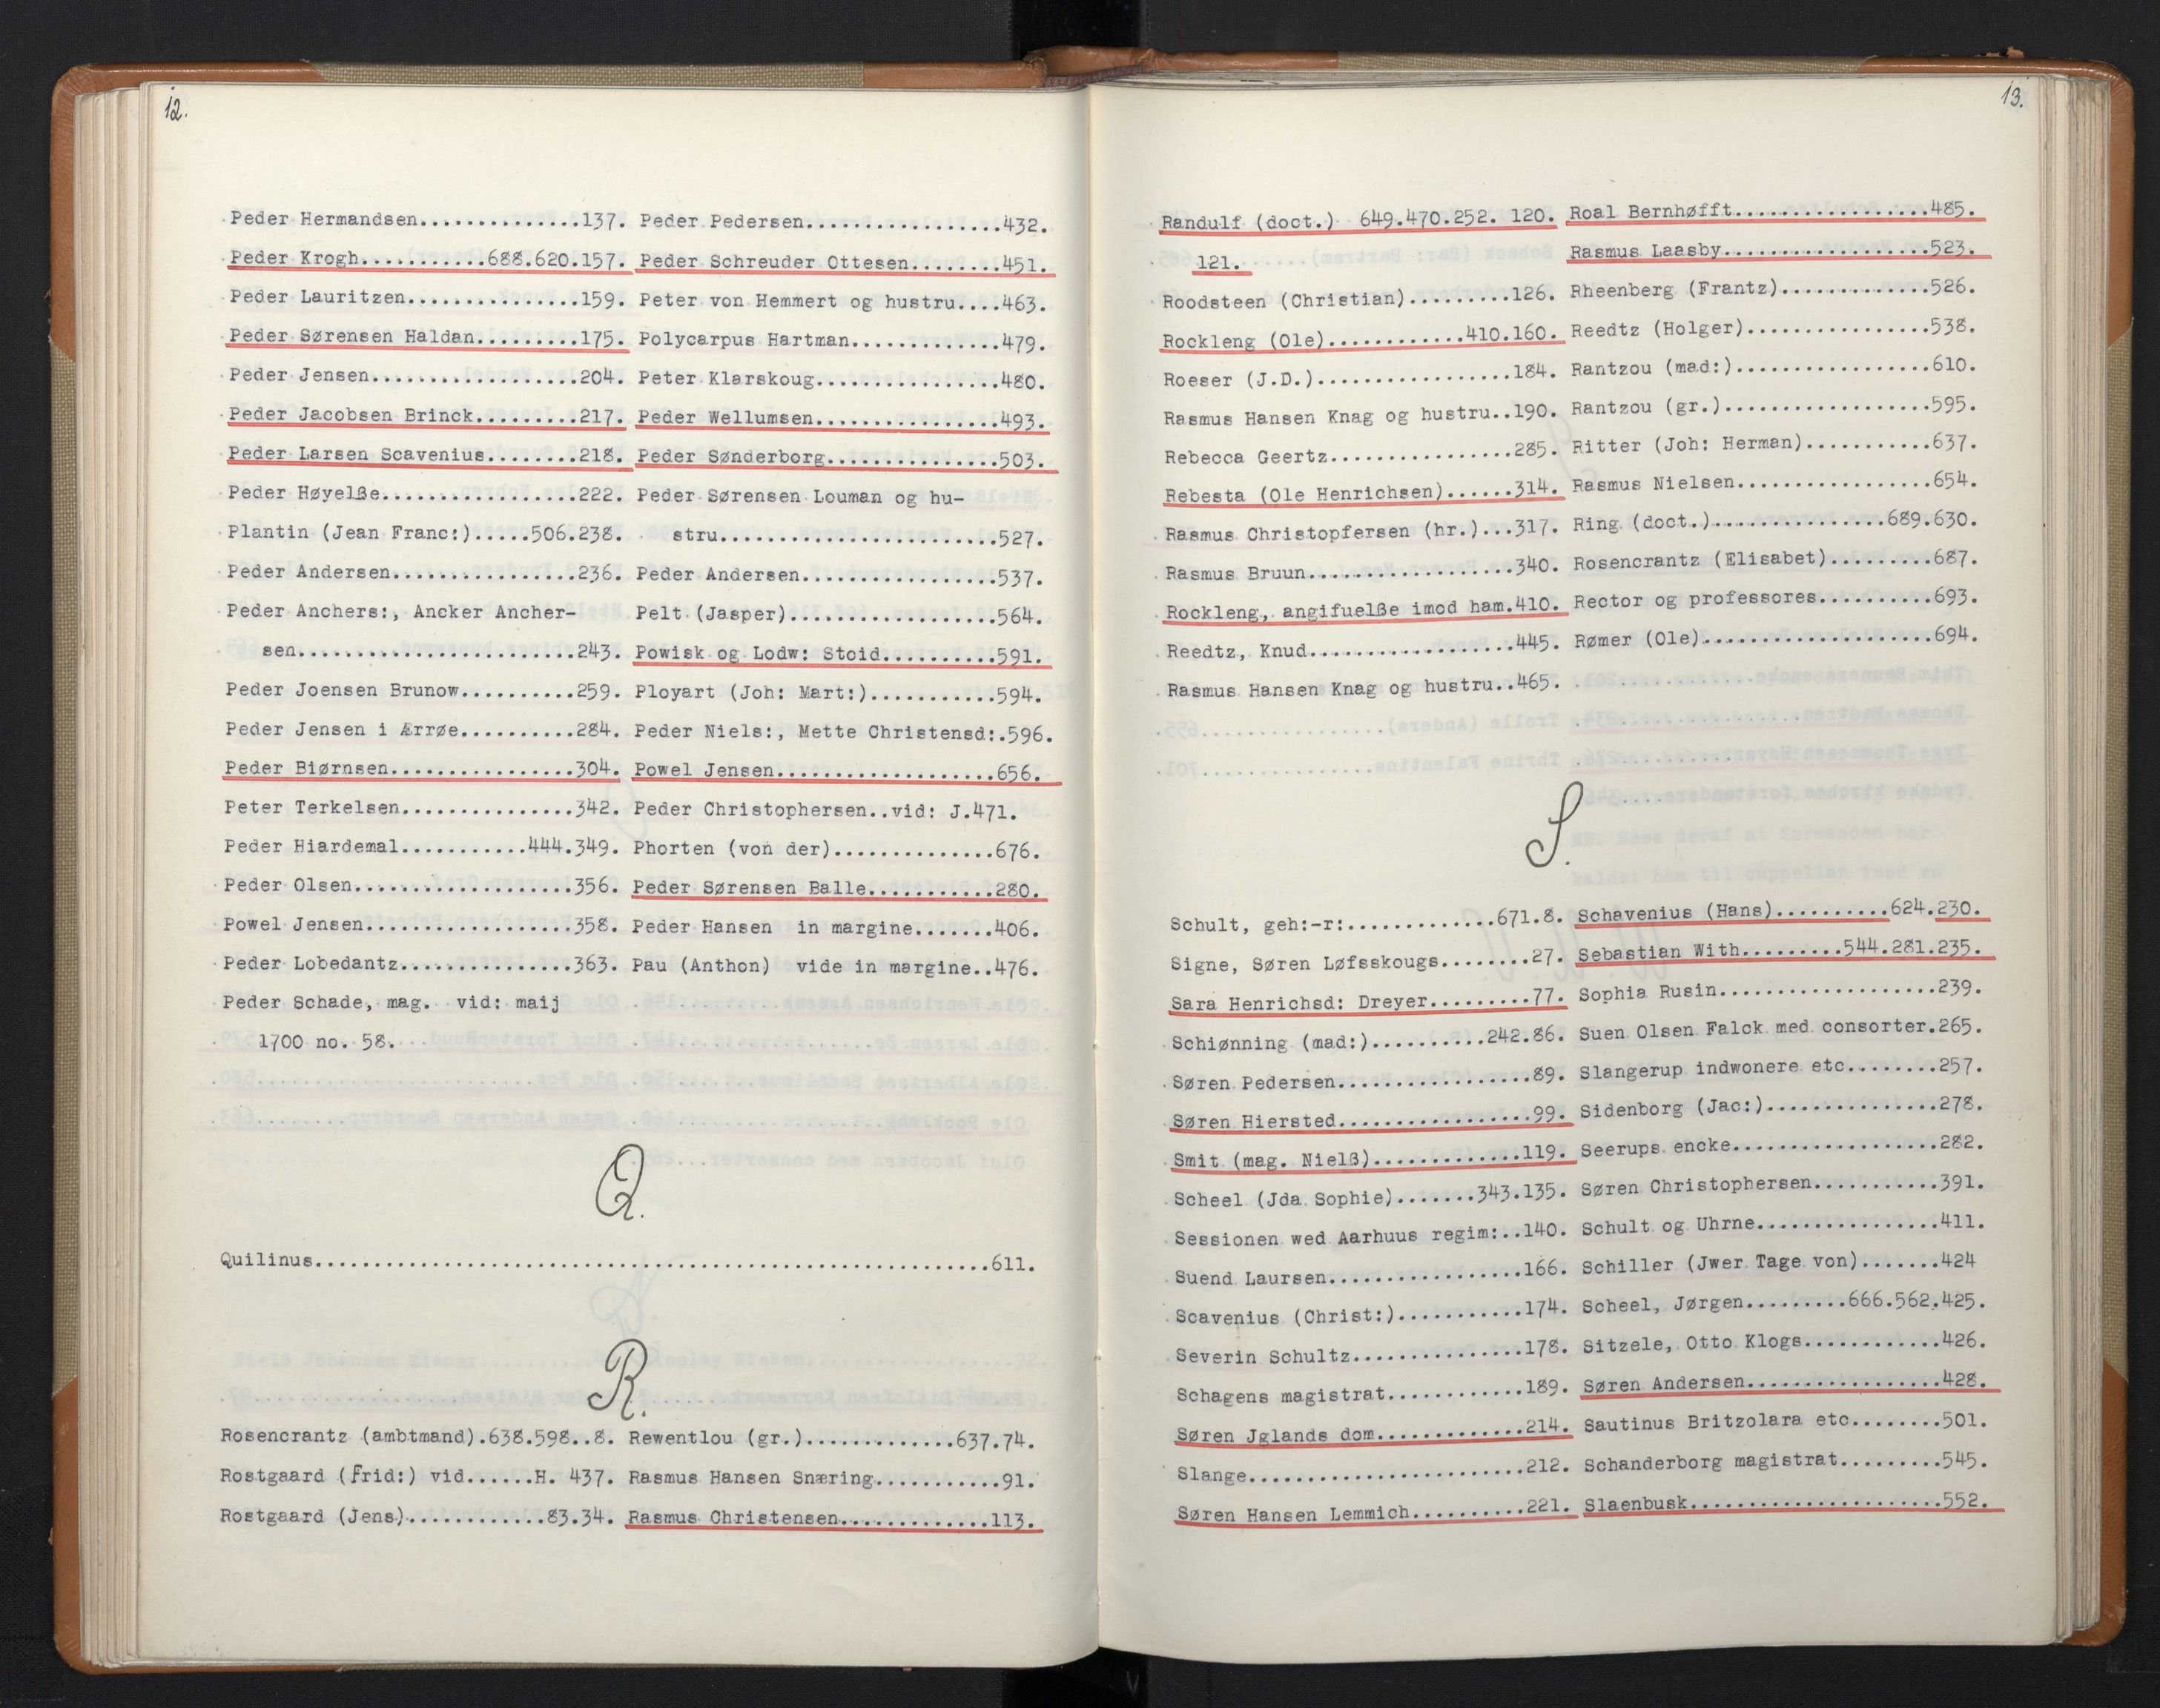 12.
Peder Hermandsen..............137.
Peder Krogh...........688.620.157.
Peder Lauritzen...............159.
Peder Sørensen Haldan.........175.
Peder Jensen..................204.
Peder Jacobsen Brinck.........217.
Peder Larsen Scavenius........218.
Peder Høyelße.................222.
Plantin (Jean Franc:).....506.238.
Peder Andersen................236.
Peder Anchers:, Ancker Ancher-
sen........................243.
Peder Joensen Brunow..........259.
Peder Jensen i Ærrøe..........284.
Peder Biørnsen................304.
Peter Terkelsen...............342.
Peder Hiardemal...........444.349.
Peder Olsen...................356.
Powel Jensen..................358.
Peder Lobedantz...............363.
Peder Schade, mag. vid: maij
1700 no. 58.
Peder Pedersen.................432.
Peder Schreuder Ottesen........451.
Peter von Hemmert og hustru....463.
Polycarpus Hartman.............479.
Peter Klarskoug................480.
Peder Wellumsen................493.
Peder Sønderborg...............503.
Peder Sørensen Louman og hu-
stru........................527.
Peder Andersen.................537.
Pelt (Jasper)..................564.
Powisk og Lodw: Stcid..........591.
Ployart (Joh: Mart:)...........594.
Peder Niels:, Mette Christensd:.596.
Powel Jensen...................656.
Peder Christophersen..vid: J.471.
Phorten (von der)..............676.
Peder Sørensen Balle...........280.
Peder Hansen in margine.......406.
Pau (Anthon) vide in margine..476.
Q.
Quilinus..........................................................611.
R.
Rosencrantz (ambtmand).638.598..8.
Rostgaard (frid:) vid......H. 437.
Rostgaard (Jens)............83.34.
Rewentlou (gr.).............637.74.
Rasmus Hansen Snæring...........91.
Rasmus Christensen.............113.
13.
Randulf (doct.) 649.470.252. 120.
121.
Roodsteen (Christian).........126.
Rockleng (Ole)............410.160.
Roeser (J.D.).................184.
Rasmus Hansen Knag og hustru..190.
Rebecca Geertz................285.
Rebesta (Ole Henrichsen)......314.
Rasmus Christopfersen (hr.)...317.
Rasmus Bruun..................340.
Rockleng, angifuelße imod ham.410.
Reedtz, Knud..................445.
Rasmus Hansen Knag og hustru..465.
Roal Bernhøfft.................485.
Rasmus Laasby..................523.
Rheenberg (Frantz).............526.
Reedtz (Holger)................538.
Rantzou (mad:).................610.
Rantzou (gr.)..................595.
Ritter (Joh: Herman)...........637.
Rasmus Nielsen.................654.
Ring (doct.)...............689.630.
Rosencrantz (Elisabet).........687.
Rector og professores..........693.
Rømer (Ole)....................694.
S.
Schult, geh:-r:.............671.8.
Signe, Søren Løfsskougs........27.
Sara Henrichsd: Dreyer.........77.
Schiønning (mad:)..........242.86.
Søren Pedersen.................89.
Søren Hiersted.................99.
Smit (mag. Nielß).............119.
Scheel (Jda Sophie).......343.135.
Sessionen wed Aarhuus regim:..140.
Suend Laursen.................166.
Scavenius (Christ:)...........174.
Severin Schultz...............178.
Schagens magistrat............189.
Søren Jglands dom.............214.
Slange........................212.
Søren Hansen Lemmich..........221.
Schavenius (Hans)..........624.230.
Sebastian With.........544.281.235.
Sophia Rusin...................239.
Suen Olsen Falck med consorter.265.
Slangerup indwonere etc........257.
Sidenborg (Jac:)...............278.
Seerups encke..................282.
Søren Christophersen...........391.
Schult og Uhrne................411.
Schiller (Jwer Tage von).......424
Scheel, Jørgen.........666.562.425.
Sitzele, Otto Klogs............426.
Søren Andersen.................428.
Sautinus Britzolara etc........501.
Schanderborg magistrat.........545.
Slaenbusk......................552.